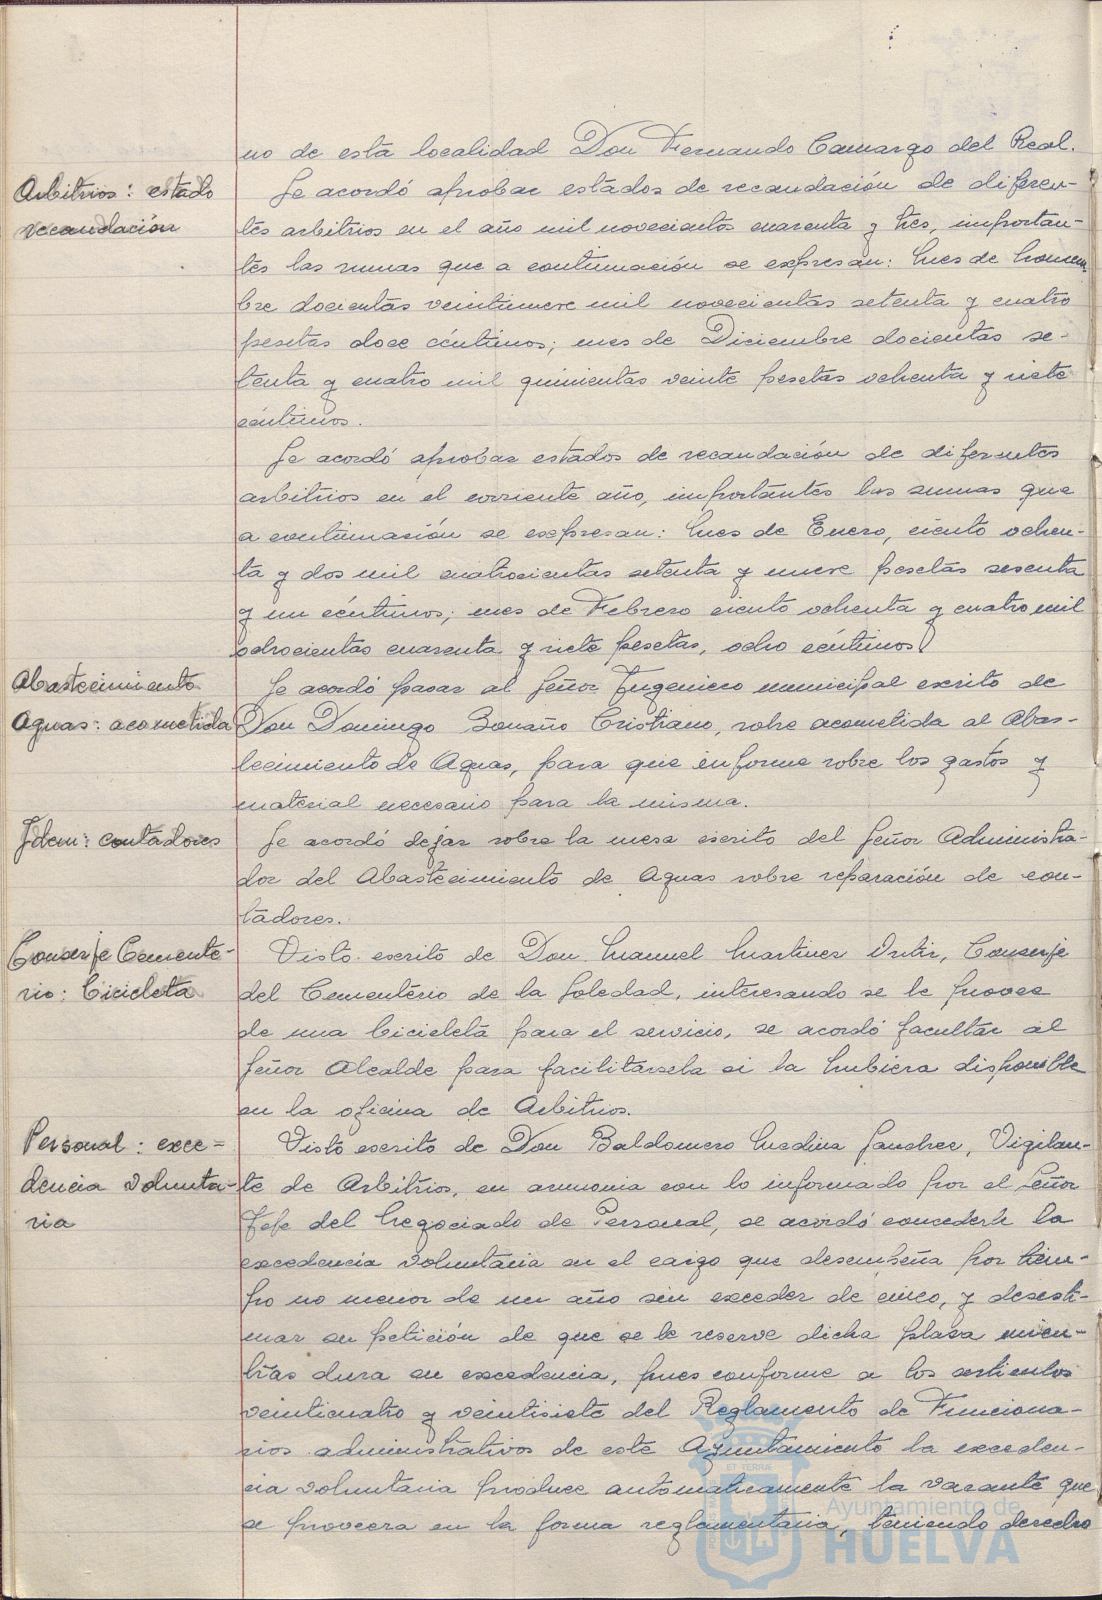 no de esta localidad Don Fernando Camargo del Real.
Arbitrios: estado
recaudación
Se acordó aprobar estados de recaudación de diferen-
tes arbitrios en el año mil novecientos cuarenta y tres, importan-
tes las sumas que a continuación se expresan: mes de Noviem-
bre docientas veintinueve mil novecientas setenta y cuatro
pesetas doce céntimos; mes de Diciembre docientas se-
tenta y cuatro mil quinientas veinte pesetas ochenta y siete
céntimos.
Se acordó aprobar estados de recaudación de diferentes
arbitrios en el corriente año, importantes las sumas que
a continuación se expresan: mes de Enero, ciento ochen-
ta y dos mil cuatrocientas setenta y nueve pesetas sesenta
y un céntimos; mes de Febrero ciento ochenta y cuatro mil
ochocientas cuarenta y siete pesetas, ocho céntimos.
Abastecimiento
Aguas: acometida
Se acordó pasar al Señor Ingeniero municipal escrito de
Don Domingo Cristiano, sobre acometida al Abas-
tecimiento de Aguas, para que informe sobre los gastos y
material necesario para la misma.
Idem: contadores
Se acordó dejar sobre la mesa escrito del Señor Administra-
dor del Abastecimiento de Aguas sobre reparación de con-
tadores.
Conserje Cemente-
rio: bicicleta
Visto escrito de Don Manuel Martinez Ortiz, Conserje
del Cementerio de la Soledad, interesando se le provea
de una bicicleta para el servicio, se acordó facultar al
Señor Alcalde para facilitarsela si la hubiera disponible
en la oficina de Arbitrios.
Personal: exce-
dencia volunta-
ria
Visto escrito de Don Baldomero Medina Sanchez, Vigilan-
te de Arbitrios, en armonia con lo informado por el Señor
Jefe del Negociado de Personal, se acordó concederle la
excedencia voluntaria en el cargo que desempeña por tiem-
po no menor de un año sin exceder de cinco, y desesti-
mar su petición de que se le reserve dicha plaza mien-
tras dura su excedencia, pues conforme a los articulos
veinticuatro y veintisiete del Reglamento de Funciona-
rios administrativos de este Ayuntamiento la exceden-
cia voluntaria produce automaticamente la vacante que
se proveera en la forma reglamentaria, teniendo derecho
Ayuntamiento de
HUELVA